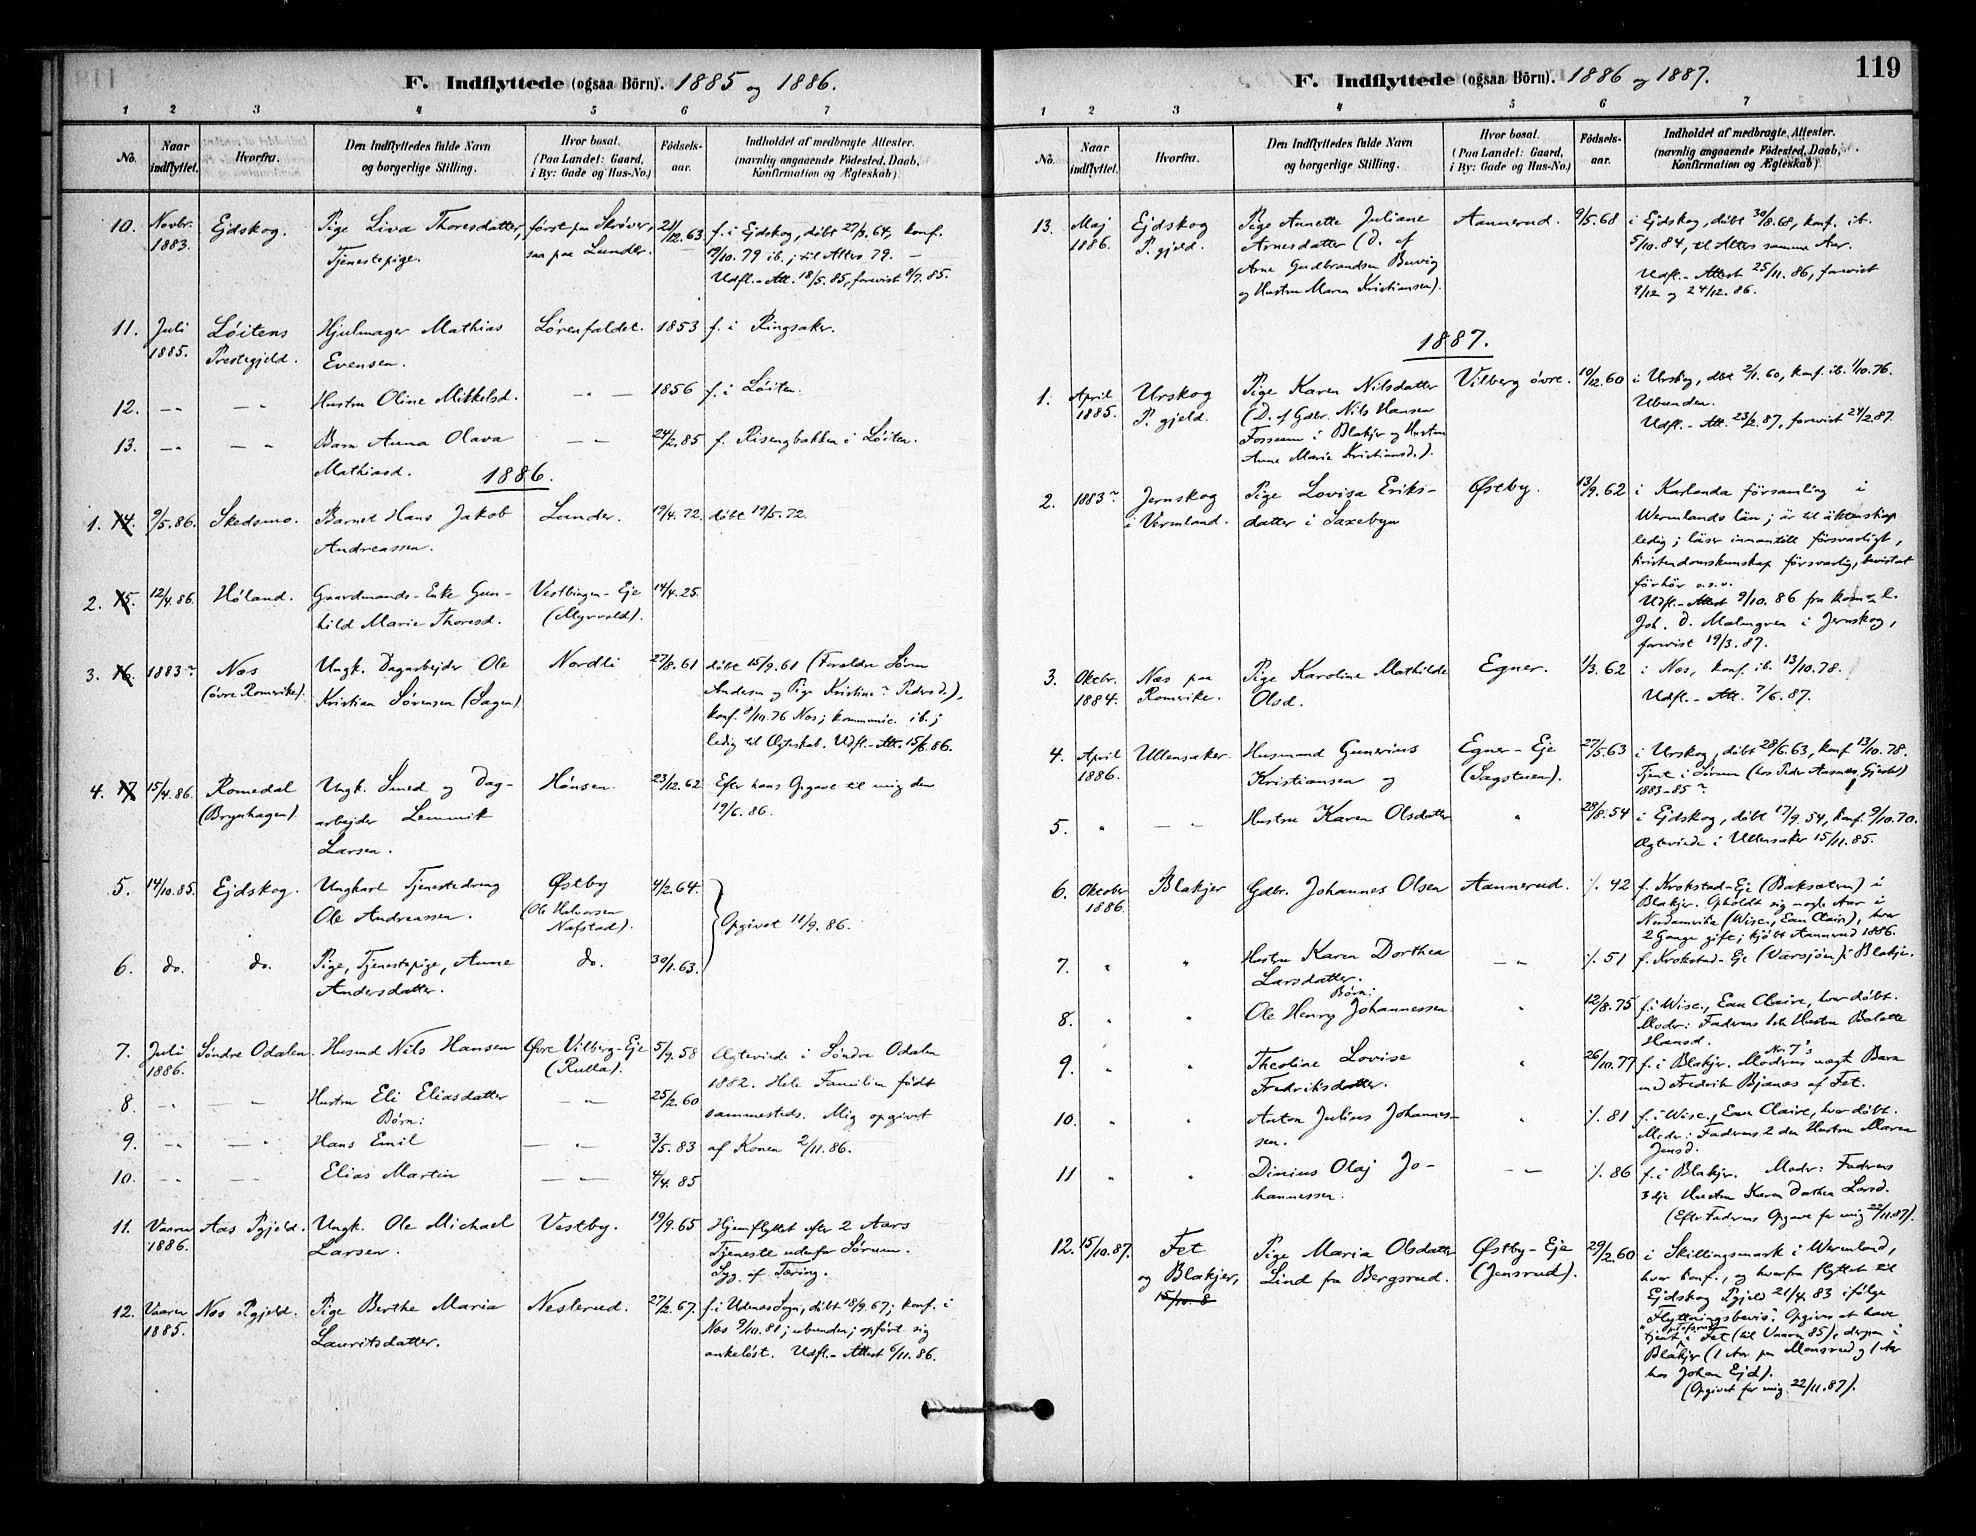 F. Indflyttede (ogsaa Börn). 1885 og 1886.
1 2 3 4 5 6 7
No.
Naar indflyttet.
Hvorfra.
Den Indflyttedes fulde Navn og borgerlige Stilling.
Hvor bosat. (Paa Landet: Gaard, i By: Gade og Hus-No.)
Födsels-aar.
Indholdet af medbragte Attester. (navnlig angaaende Födested, Daab, Konfirmation og Ægteskab)
10. Novbr. Ejdskog. Pige Liva Thoresdatter, først paa Skrøver, 21/12.63. f. i Ejdskog, døbt 27/3.64, konf.
1883. Tjenestepige. saa paa Lunder. 19/10.79 ib.; til Alters 79. —
Udfl.-Att. 18/5.85, forevist 9/7.85.
11. Juli Löitens Hjulmager Mathias Lörenfaldet. 1853 f. i Ringsaker.
1885. Prestegjeld. Evensen.
12. —„— —„— Hustru Oline Mikkelsd. —„— 1856 f. i Löiten.
13. —„— —„— Barn Anna Olava —„— 24/2.85 f. Risengbakken i Löiten.
Mathiasd.
1886.
1. 14. 9/5.86. Skedsmo. Barnet Hans Jakob Lunder. 19/4.72. døbt 19/5.72.
Andreassen.
2. 15. 12/4.86. Höland. Gaardmands-Enke Gun- Vestbingen-Eje 14/4.25.
hild Marie Thoresd. (Myrvold).
3. 16. 1883 ~ Nes Ungk. Dagarbejder Ole Nordli 27/8.61 döbt 15/9.61 (Foreldre Sören
(övre Romerike). Kristian Sörensen (Sagen) Andersen og Pige Kristine ~ Pedersd.),
konf. 8/10.76 Nes; kommunic. ib.;
ledig til Ægteskab. Udfl.-Att. 15/6.86.
4. 17. 15/4.86. Romedal Ungk. Smed og Dag- Hönsen. 23/12.62 Efter hans Opgave til mig den
(Brynhagen). arbejder Lemmik 19/6.86.
Larsen.
5. 14/10.85. Ejdskog. Ungkarl Tjenestedreng Østby 4/2.64.
Ole Andreassen. (Ole Halvorsen
Nafstad).
Opgivet 11/9.86.
6. do. do. Pige, Tjenestepige, Anne do. 30/1.63.
Andersdatter.
7. Juli Söndre Odalen. Husmd Nils Hansen Øvre Vilberg-Eje 5/9.58 Ægteviede i Söndre Odalen
1886. (Rulla). 1882. Hele Familien født
8. —„— —„— Hustru Eli Eliasdatter —„— 25/2.60 sammesteds. Mig opgivet
Børn:
9. —„— —„— Hans Emil —„— 3/5.83 af Konen 2/11.86.
10. —„— —„— Elias Martin —„— 4/4.85
11. Vaaren Aas Pgjeld. Ungk. Ole Michael Vestby. 19/9.65 Hjemflyttet efter 2 Aars
1886. Larsen. Tjeneste udenfor Sörum.
Syg af Tæring.
12. Vaaren Nes Pgjeld. Pige Berthe Maria Nesterud. 27/2.67. f. i Udenes Sogn, döbt 18/9.67; konf. i
1885. Lauritsdatter. Nes 9/10.81; ubunden; opført sig
ankeløst. Udfl.-Attest 6/11.86.
119
F. Indflyttede (ogsaa Börn). 1886 og 1887.
1 2 3 4 5 6 7
No.
Naar indflyttet.
Hvorfra.
Den Indflyttedes fulde Navn og borgerlige Stilling.
Hvor bosat. (Paa Landet: Gaard, i By: Gade og Hus-No.)
Födsels-aar.
Indholdet af medbragte Attester. (navnlig angaaende Födested, Daab, Konfirmation og Ægteskab)
13. Maj Ejdskog Pige Annette Juliane Aannerud. 9/5.68 i Ejdskog, döbt 30/8.68, konf. ib.
1886. P. gjeld. Arnesdatter (D. af 5/10.84, til Alters samme Aar.
Arne Gudbrandsen Buvig Udfl.-Attest 25/11.86, forevist
og Hustru Maren Kristiansen). 9/12 og 24/12.86.
1887.
1. April Urskog Pige Karen Nilsdatter Vilberg övre. 10/12.60 i Urskog, döbt 2/1.60, konf. ib. 1/10.76.
1885. P. gjeld. (D. af Gdbr. Nils Hansen Ubunden.
Fossum i Blakjer og Hustru Udfl.-Att. 23/2.87, forevist 24/2.87.
Anne Marie Kristiansd.).
2. 1883 ~ Jernskog Pige Lovisa Eriks- Østby. 13/9.62 i Karlanda församling i
i Vermland. datter i Saxebyn Wermlands län; är til äktenskap
ledig; läser innantill försvarligt,
kristendomskunskap försvarlig, bevistat
förhör o.s.v.
Udfl.-Attest 9/10.86 fra kom. ~ l.
Joh. D. Malmgren i Jernskog,
forevist 19/3.87.
3. Oktbr. Nes paa Pige Karoline Mathilde Egner. 1/3.62 i Nes, konf. ib. 13/10.78.
1884. Romerike. Olsd. Udfl.-Att. 7/6.87.
4. April Ullensaker. Husmand Gunerius Egner-Eje 27/5.63 i Urskog, döbt 28/6.63, konf 13/10.78.
1886. Kristiansen og (Sagstuen). Tjent i Sörum (hos Peder Aasnes, Gjested)
1883-85 ~.
5. „ —„— Hustru Karen Olsdatter „ 28/8.54 i Ejdskog, döbt 17/9.54, konf. 9/10.70.
Ægteviede i Ullensaker 15/11.85.
6. Oktober Blakjer Gdbr. Johannes Olsen Aannerud. ⁒ 42 f. Krokstad-Eje (Baksetern) i
1886. Blakjer. Opholdt sig nogle Aar i
Nordamerika (Wisc., Eau Claire), hvor
2 Gange gift; kjøbt Aannerud 1886.
7. „ „ Hustru Karen Dorthea —„— ⁒ 51 f. Krokstad-Eje (Varsjøen) i Blakjer.
Larsdatter.
Børn:
8. „ „ Ole Henry Johannessen „ 12/8.75 f. i Wisc., Eau Claire, hvor döbt.
Moder: Faderens 1ste Hustru Balette
Hansd.
9. „ „ Theoline Lovise „ 26/10.77 f. i Blakjer. Moderens No 7's uegt Barn
Fredriksdatter. med Fredrik Bjanes af Fet.
10. „ „ Anton Julius Johannes- „ ⁒ 81 f. i Wisc., Eau Claire, hvor döbt.
sen. Moder: Faderens 2den Hustru Maren
Jensd.
11 „ „ Dinius Olaj Jo- —„— ⁒ 86 f. i Blakjer. Moder: Faderens
hannessen. 3dje Hustru Karen Dorthea Larsd.
(Efter Faderens Opgave for mig 22/11.87).
12. 15/10.87. Fet Pige Maria Olsdatter Østby-Eje 29/2.60 i Skillingsmark i Wermland,
og Blakjer, Lind fra Bergsrud. (Jensrud). hvor konf., og hvorfra flyttet til
15/10.8 Ejdskog Pgjeld 21/4.83 ifølge
"Flyttningsbevis". Opgives at have
tjent i Fet (til Vaaren 85), derpaa i
Blakjer (1 Aar paa Monsrud og 1 Aar
hos Johan Ejd).
(Opgivet for mig 22/11.87).